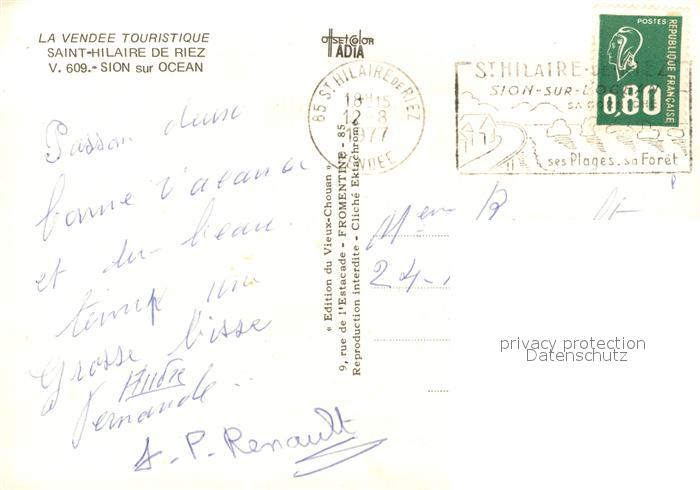 LA VENDEE TOURISTIQUE
SAINT-HILAIRE DE RIEZ
V. 609.- SION sur OCEAN
offsetcolor
IADIA
85 ST HILAIRE DE RIEZ
18H15
12-8
1977
VENDEE
ST HILAIRE-DE-RIEZ
SION-SUR-L'OCEAN
ses Plages. sa Forêt
POSTES
REPUBLIQUE FRANÇAISE
0,80
Passon deuse
bonne vacance
et du beau
temps une
Grosse bisse
André
Fernande
A.-P. Renault
« Edition du Vieux-Chouan »
9, rue de l'Estacade - FROMENTINE - 85
Reproduction interdite - Cliché Ektachrome
R.
24-
privacy protection
Datenschutz